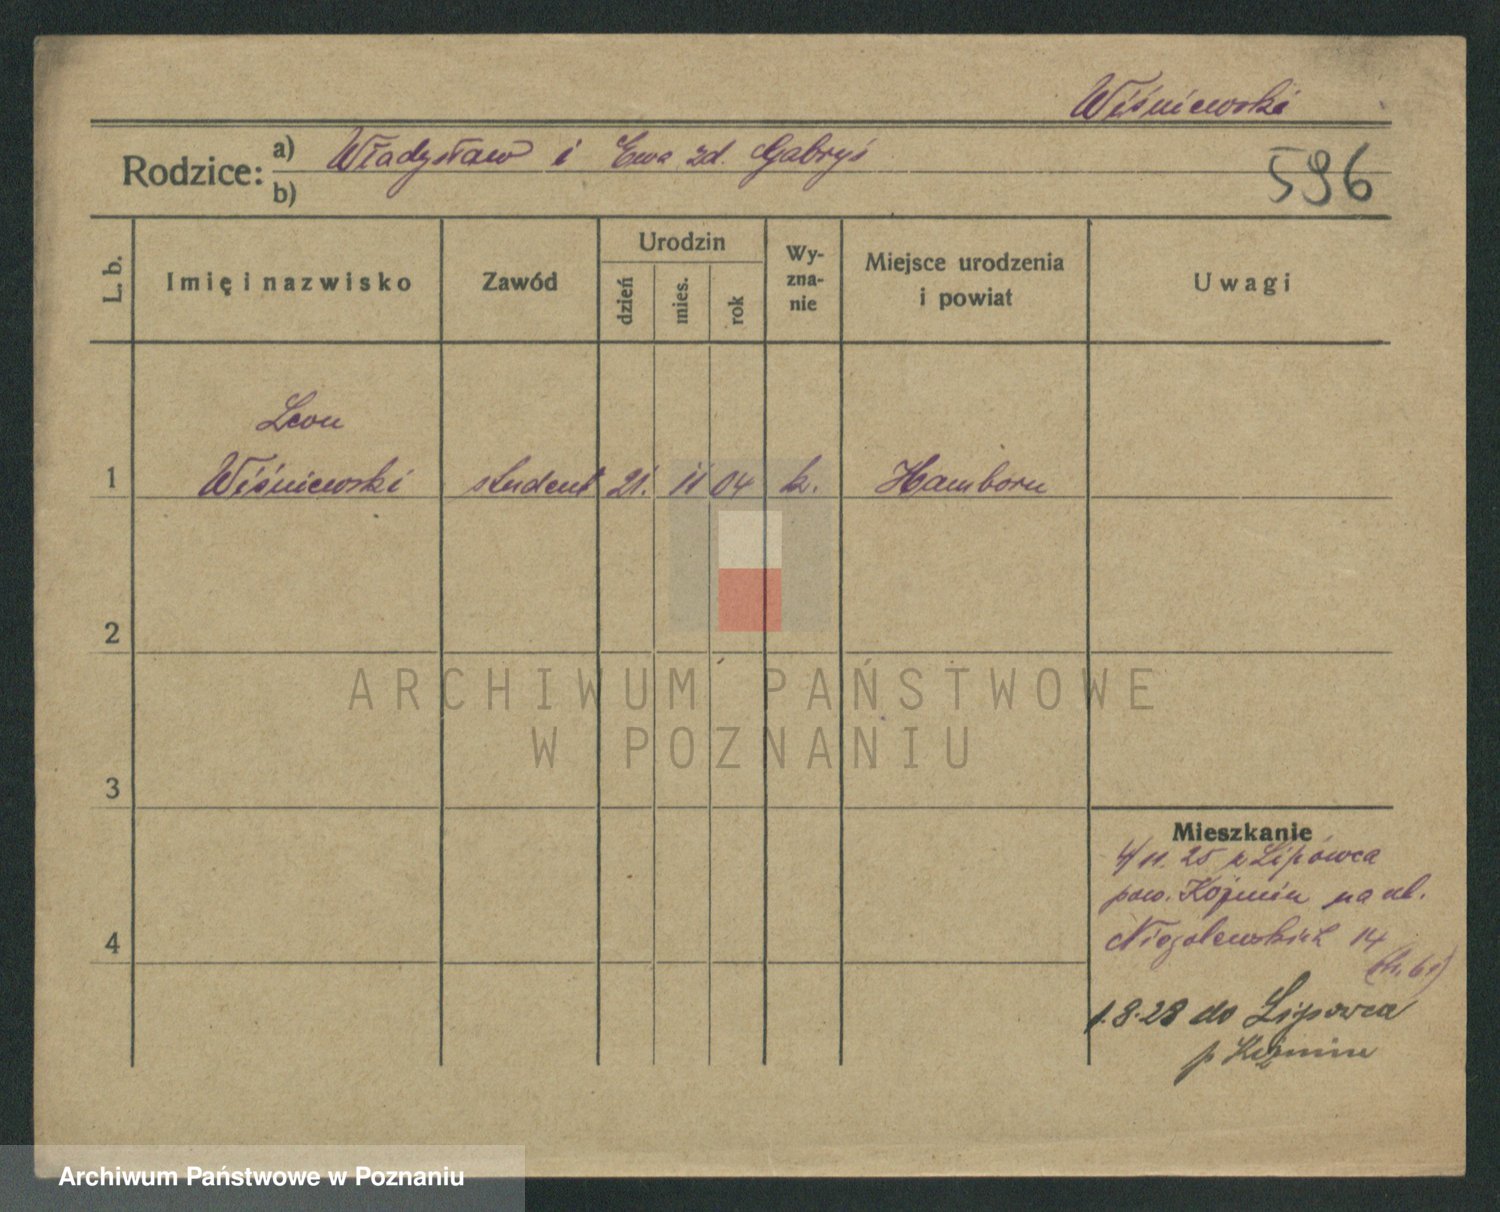 Wiśniewski
Rodzice: a) Władysław i Ewa zd. Gabryś
b)
596
L. b. Imię i nazwisko Zawód Urodzin dzień mies. rok Wy-zna-nie Miejsce urodzenia i powiat Uwagi
Leon
1 Wiśniewski student 21. 11 04 k. Hamborn
2
ARCHIWUM PAŃSTWOWE
W POZNANIU
3
Mieszkanie
4/11. 25 z Lipowca
pow. Koźmin na ul.
4 Niegolewskich 14
1.8.28 do Lipowca
p Koźmin
Archiwum Państwowe w Poznaniu